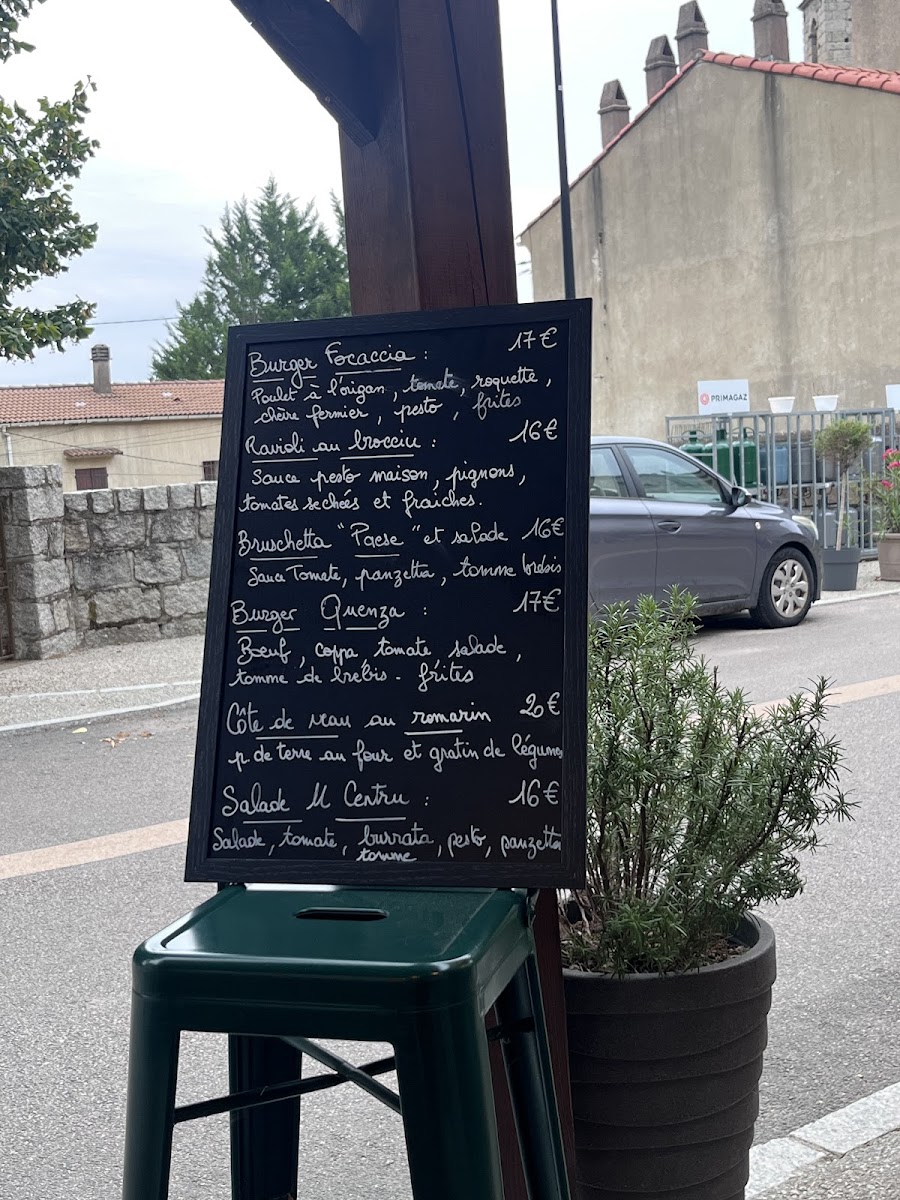 Burger Focaccia : 17€
Poulet à l'origan, tomate, roquette,
chèvre fermier, pesto, frites
Ravioli au brocciu : 16€
Sauce pesto maison, pignons,
tomates sechées et fraiches.
Bruschetta "Paese" et salade 16€
Sauce Tomate, panzetta, tomme brebis
Burger Quenza : 17€
Bœuf, coppa, tomate, salade,
tomme de brebis - frites
Côte de veau au romarin 20€
p de terre au four et gratin de légumes
Salade U Centru : 16€
Salade, tomate, burrata, pesto, panzetta
tomme
PRIMAGAZ